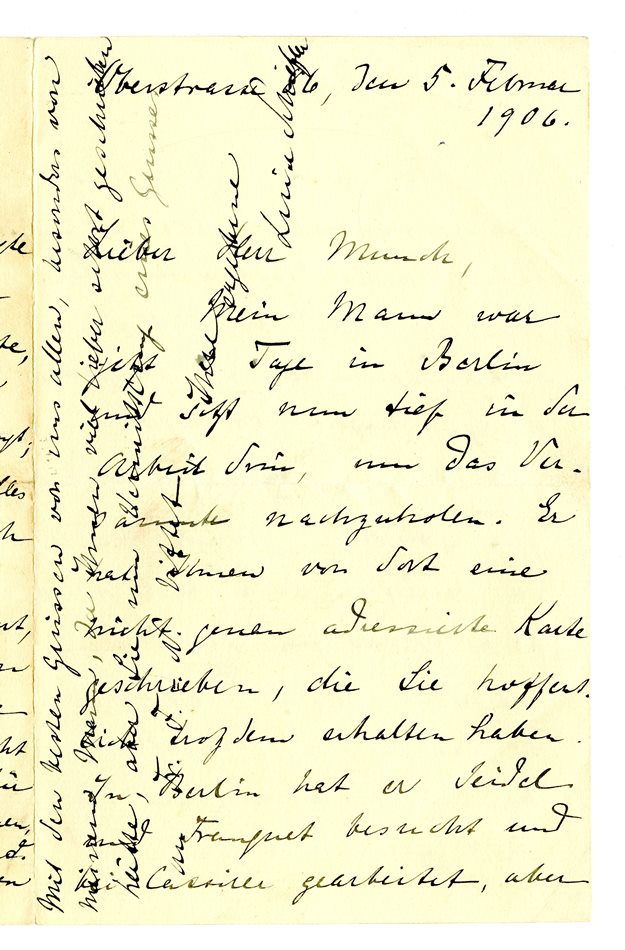 Oberstrasse 86, den 5. Februar
1906.
Lieber Herr Munch,
Mein Mann war
jetzt Tage in Berlin
und sitzt nun tief in der
Arbeit drin, um das Ver-
säumte nachzuholen. Er
hat Ihnen von dort eine
nicht genau adressierte Karte
geschrieben, die Sie hoffent-
lich trotzdem erhalten haben.
In Berlin hat er Seidel
und Tranquet besucht und
bei Cassirer gearbeitet, aber
Mit den besten Grüssen von uns allen, besonders von
meinem Mann, der Ihnen viel lieber selbst geschrieben
hätte, aber Sie um Übermittlung eines Grusses
an Dr. bittet
Ihre ergebene